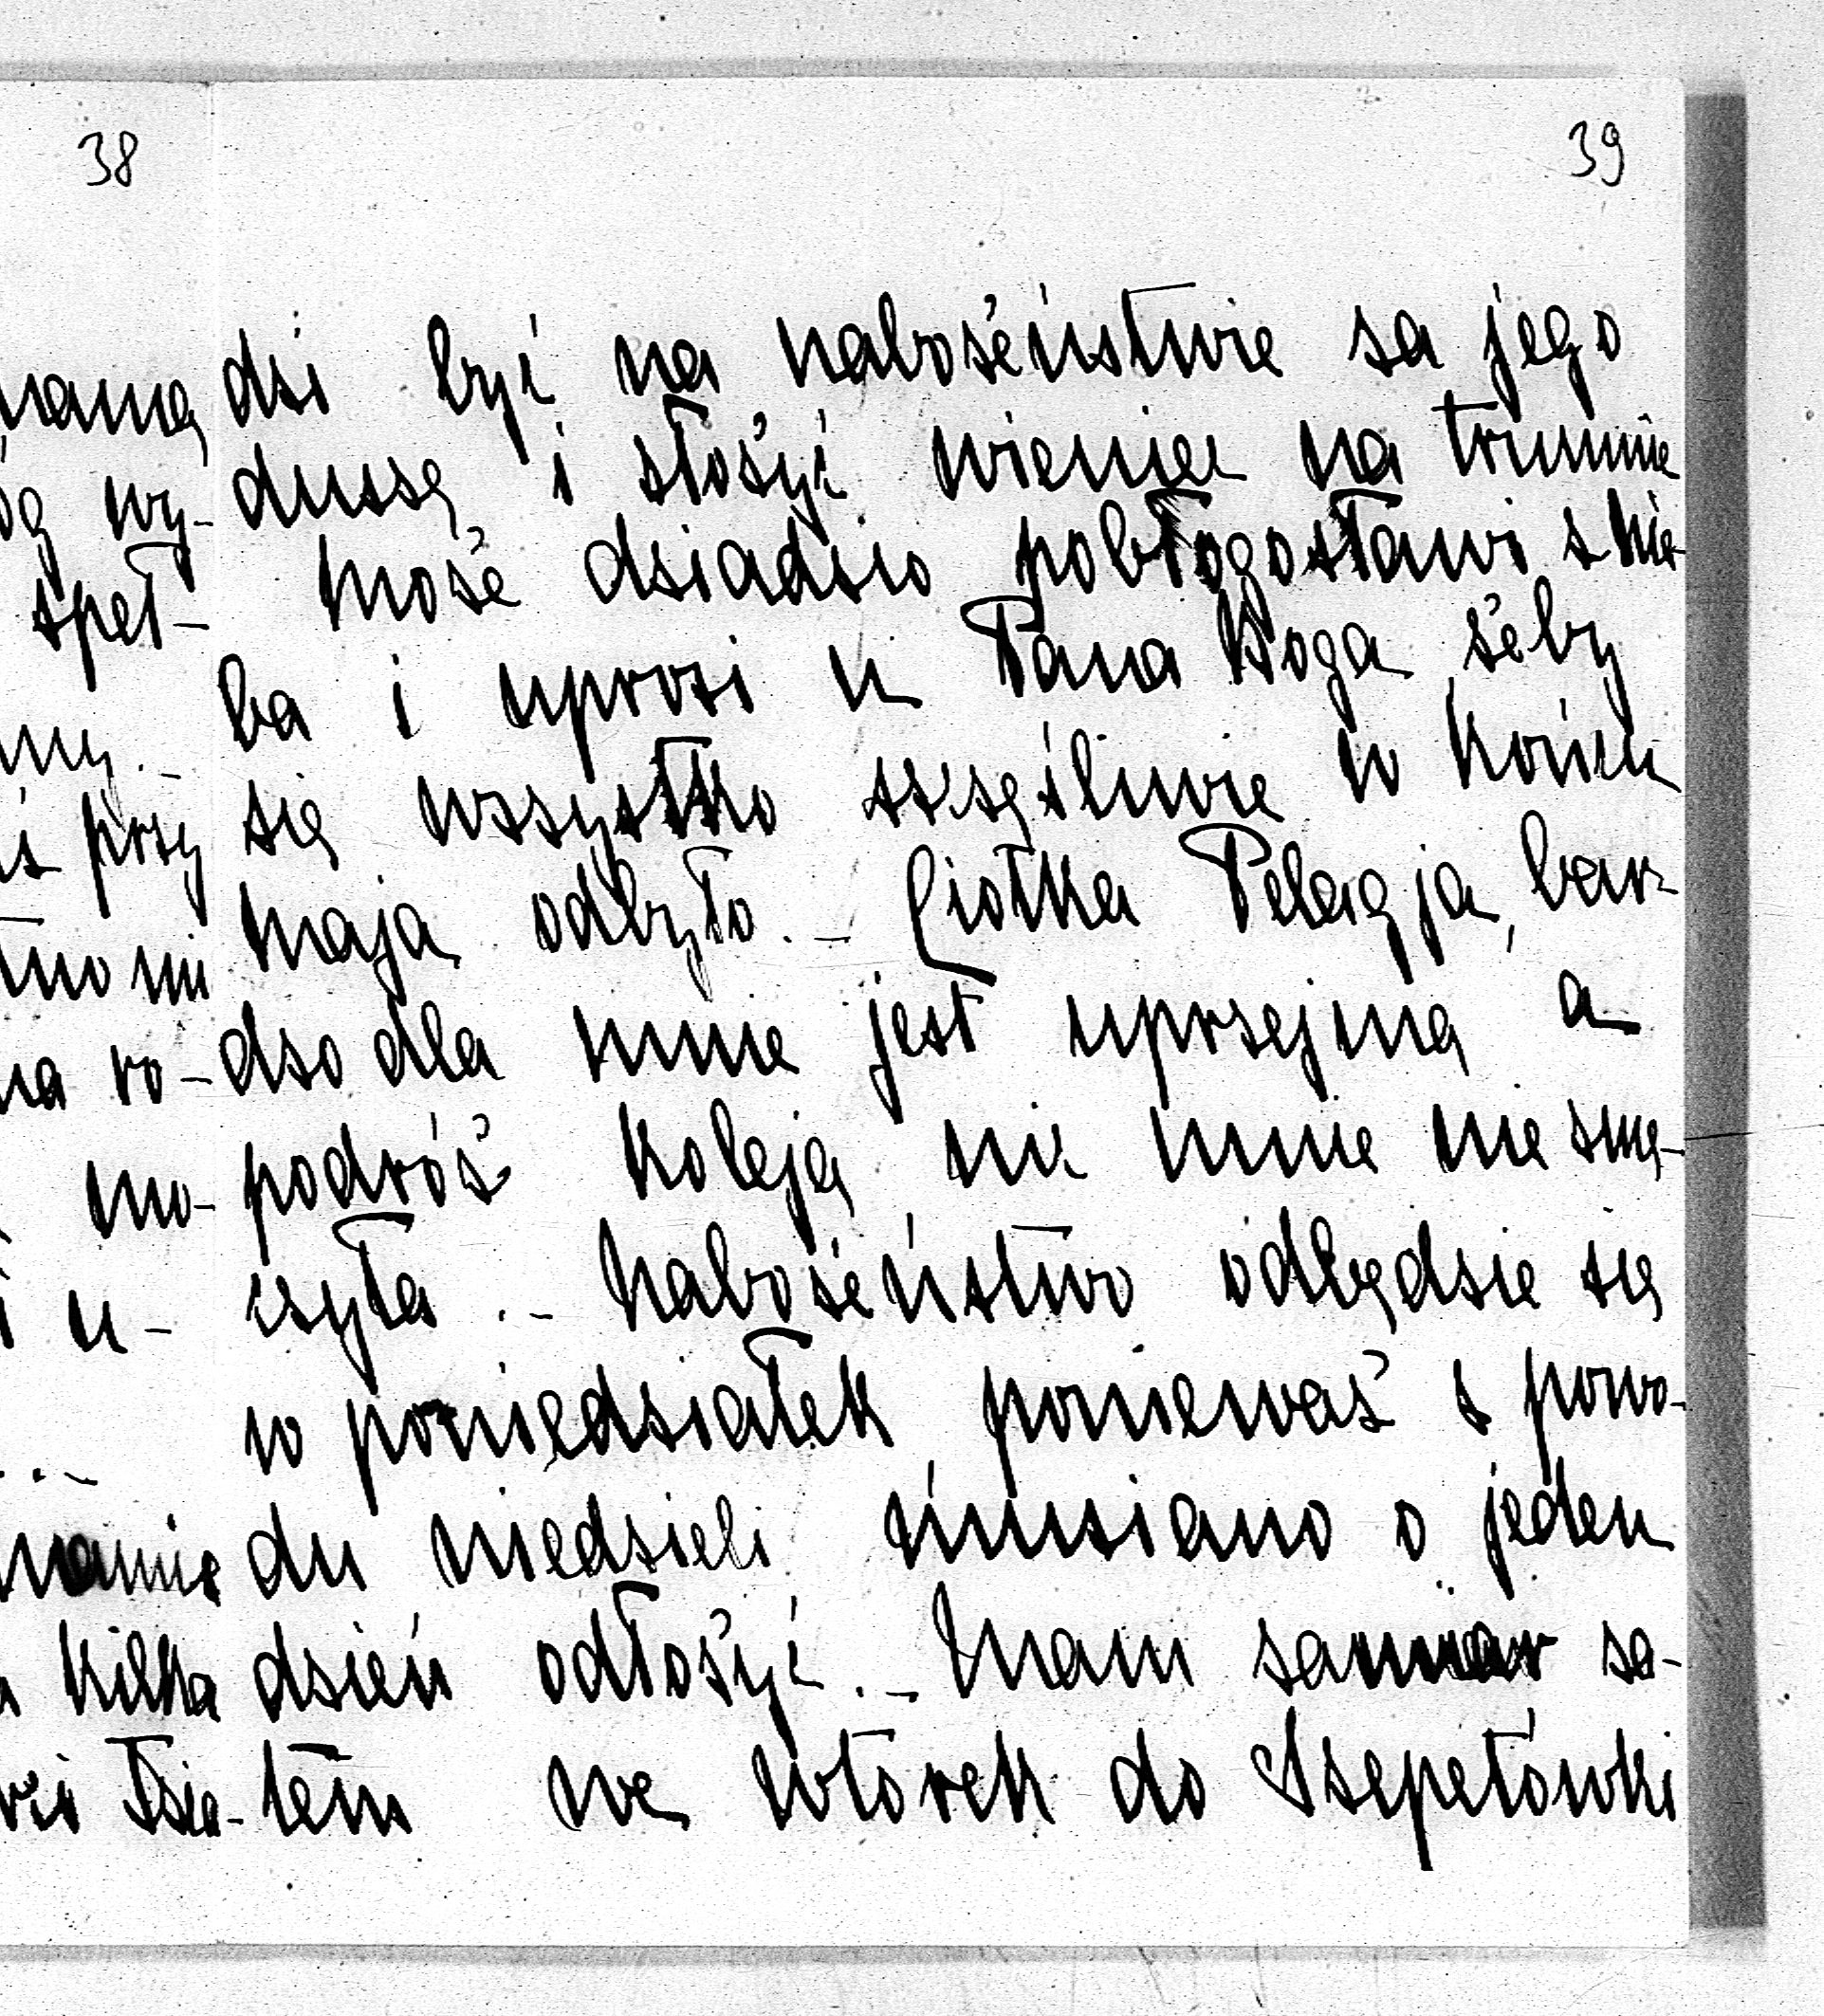 38
wy-
speł-
przy
mi
na ro-
mo-
u-
kilka
39
dzi być na nabożeństwie za jego
duszę i złożyć wieniec na trumnie
może dziadzio pobłogosławi z nie-
ba i uprosi u Pana Boga żeby
się wszystko szczęśliwie w końcu
maja odbyło._ Ciotka Pelagja, bar-
dzo dla mnie jest uprzejmą a
podróż koleją nic mnie nie zmę-
czyła._ Nabożeństwo odbędzie się
w poniedziałek ponieważ z powo-
du niedzieli musiano o jeden
dzień odłożyć._ Mam zamiar za-
tem we wtorek do Szepetówki